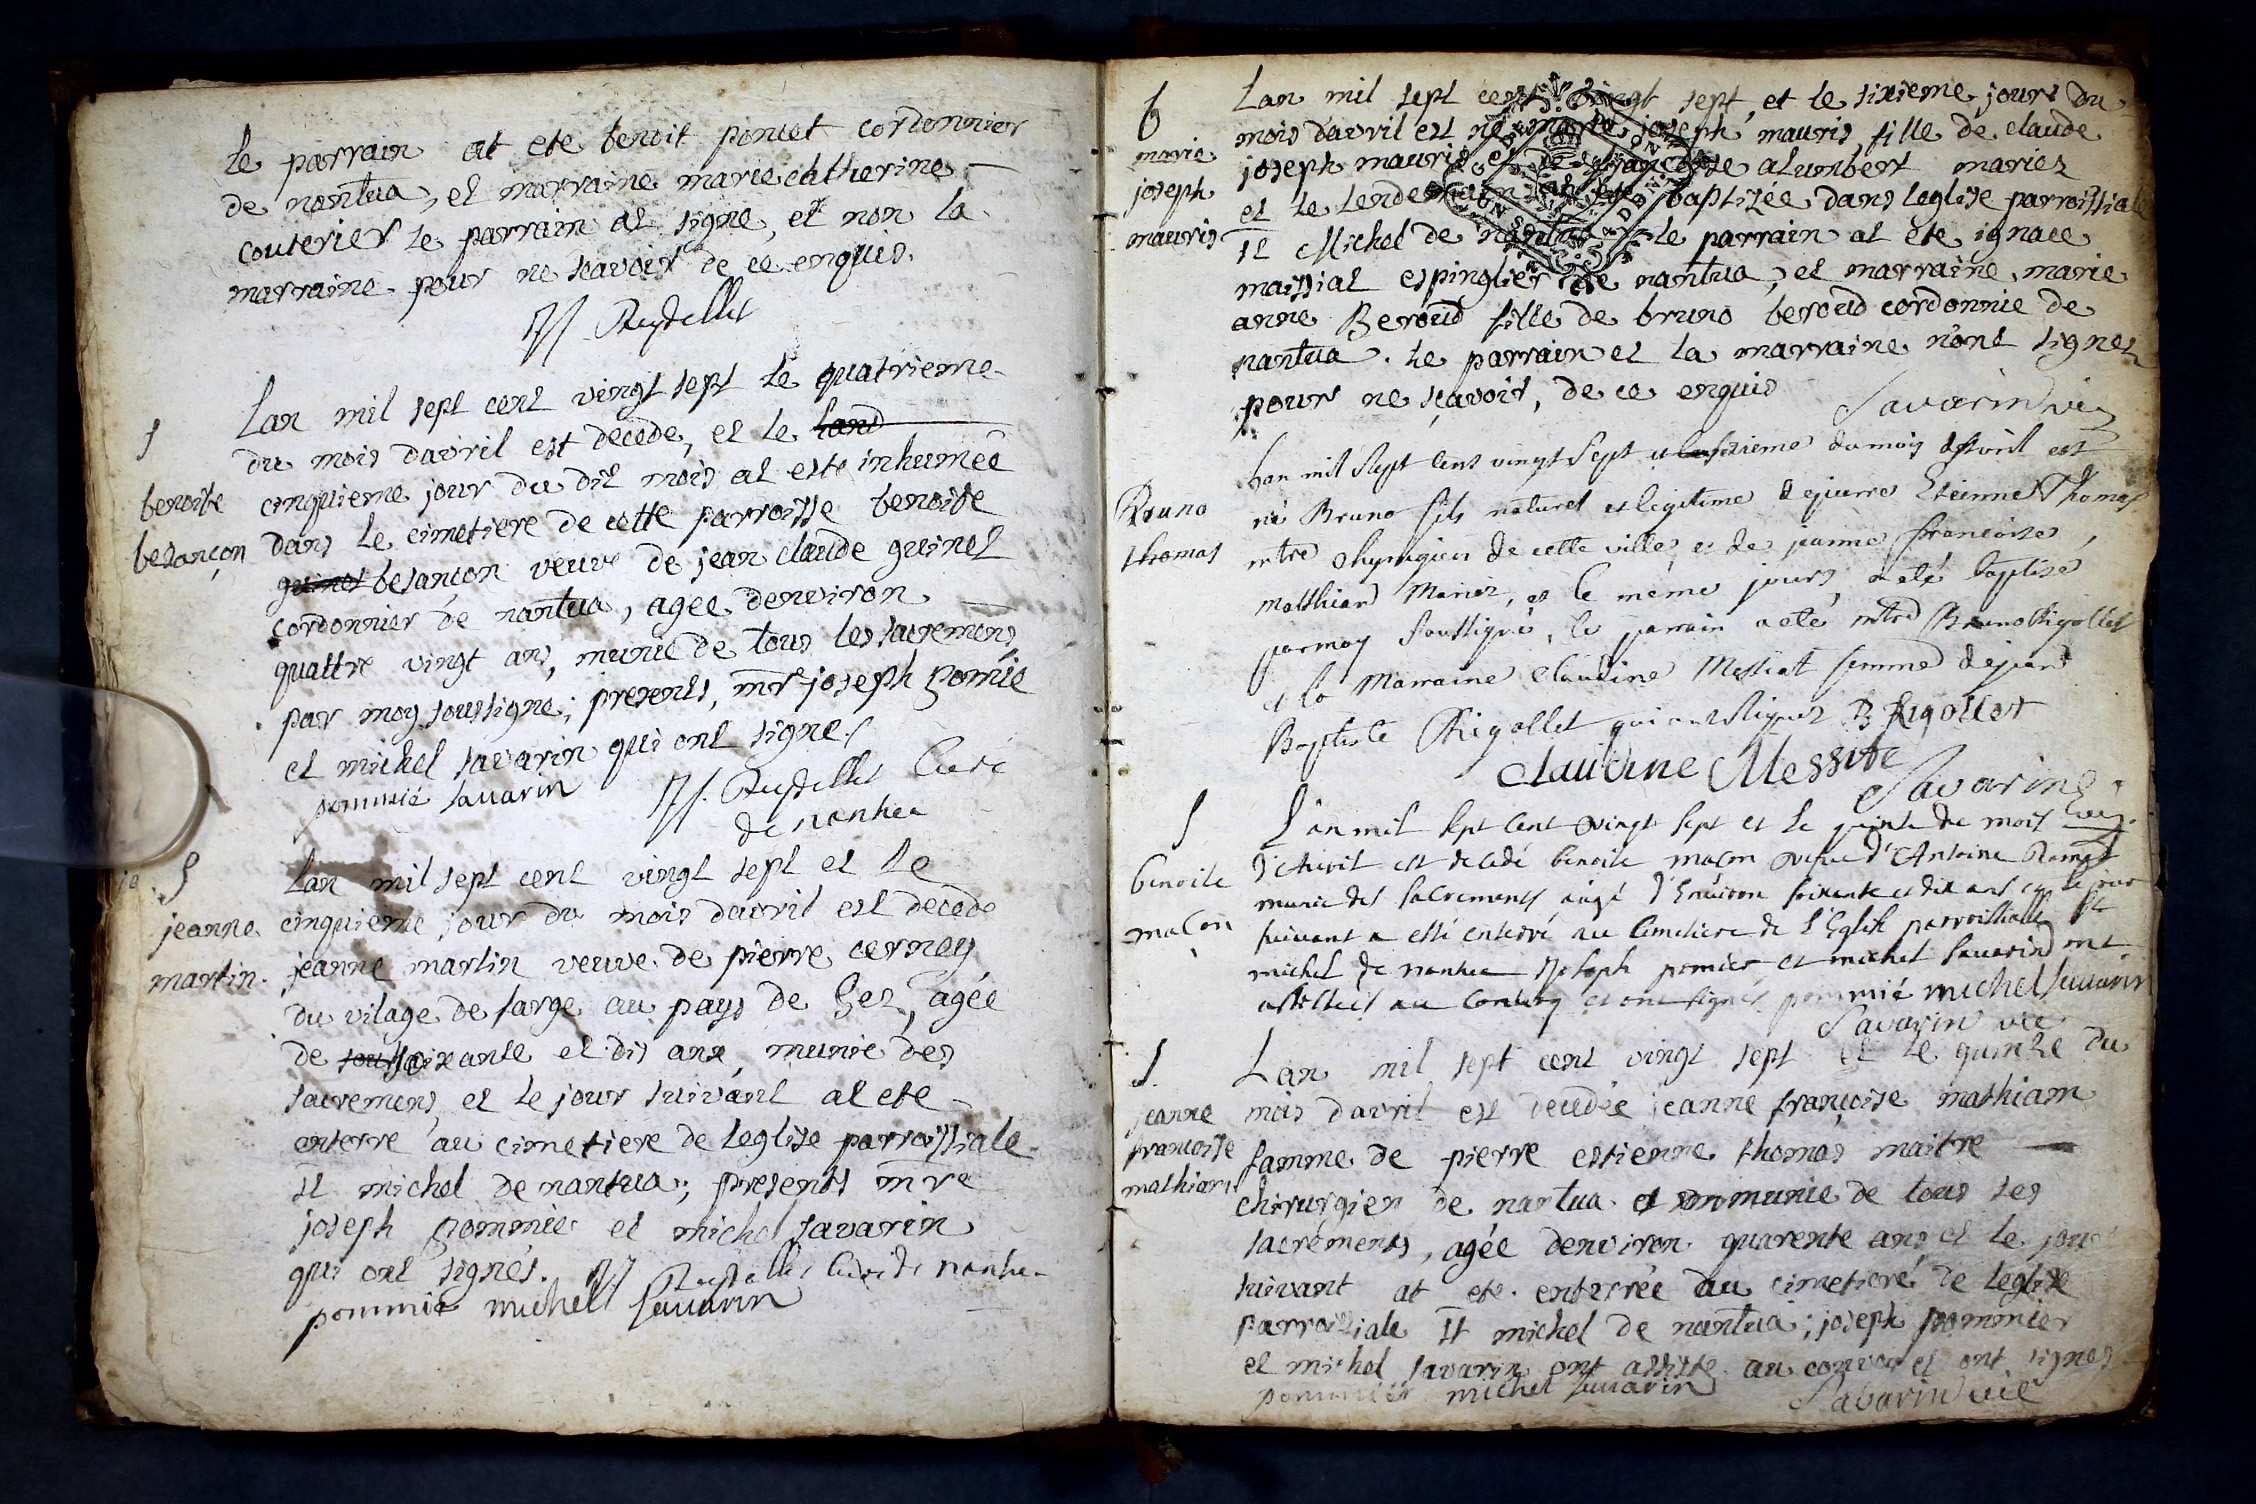 le parrain at ete benoit poncet cordonnier
de nantua, et marraine marie catherine
couterier le parrain at signe, et non la
marraine pour ne scavoir de ce enquis.
Reydellet
S
benoite
besançon
Lan mil sept cent vingt sept le quatrieme
du mois davril est decede, et le
cinquieme jour du dit mois at este inhumée
dans le cimetiere de cette parroisse benoite
guinet besancon veuve de jean claude guinet
cordonnier de nantua, agee denviron
quattre vingt ans, munie de tous les sacremens
par moy soussigne; presents, mre joseph pomie
et michel savarin qui ont signe.
pommié savarin Reydellet Curé
de nantua
S
jeanne
martin.
Lan mil sept cent vingt sept et le
cinquieme jour du mois davril est decede
jeanne martin veuve de pierre cernoy
du vilage de farge au pays de Gez, agée
de soixante et dis ans, munie des
sacremens et le jour suivant at ete
enterre au cimetiere de leglise parroissiale
st michel de nantua; presents mre
joseph pommie et michel savarin
qui ont signés. Reydellet Curé de nantua
pommié michel savarin
b
marie
joseph
mauris
Lan mil sept cent vingt sept, et le sixieme jour du
mois davril est né marie joseph mauris fille de claude
joseph mauris et de françoise alumbert mariez
et le lendemain at ete baptizée dans leglise parroissiale
st Michel de nantua le parrain at ete ignace
maissiat espinglier de nantua, et marraine marie
anne Beroud fille de bruno beroud cordonnie de
nantua. le parrain et la marraine nont signez
pour ne scavoir, de ce enquis
Savarin vic
Bruno
thomas
Lan mil sept cent vingt sept et sixieme du mois davril est
né Bruno fils naturel et legitime de pierre Etienne Thomas
mtre chyrurgien de cette ville, et de jeanne francoise
Matthian Mariez, et le meme jour, a eté baptisé
par moy soussigné, le parrain a eté mtre Bruno Rigollet
et la Marraine Claudine Messiat femme de jean
Baptiste Rigollet qui ont signez B Rigollet
Claudine Messite
Savarin vic.
S
benoite
maçon
L'an mil sept cent vingt sept et le quinze du mois
d'Avril est decedé benoite maçon veuve d'Antoine Romet
munie des sacrements, aagé d'Environ soixante et dix ans et le jour
suivant a esté enterré au Cimetiere de l'Eglise parroissialle St
michel de nantua Joseph pomier et michel savarin ont
assistés au Convoy et ont signés pommié michel savarin
Savarin vic
S.
jeanne
francoise
mathiam
Lan mil sept cent vingt sept et le quinze du
mois davril est decedée jeanne françoise mathiam
famme de pierre estienne thomas maitre
chirurgien de nantua munie de tous ses
sacrements, agée denviron quarente ans et le jour
suivant at ete enterrée au cimetieré de leglise
parroissiale st michel de nantua; joseph pommier
et michel savarin ont assiste au convoi et ont signes
pommier michel savarin Savarin vic